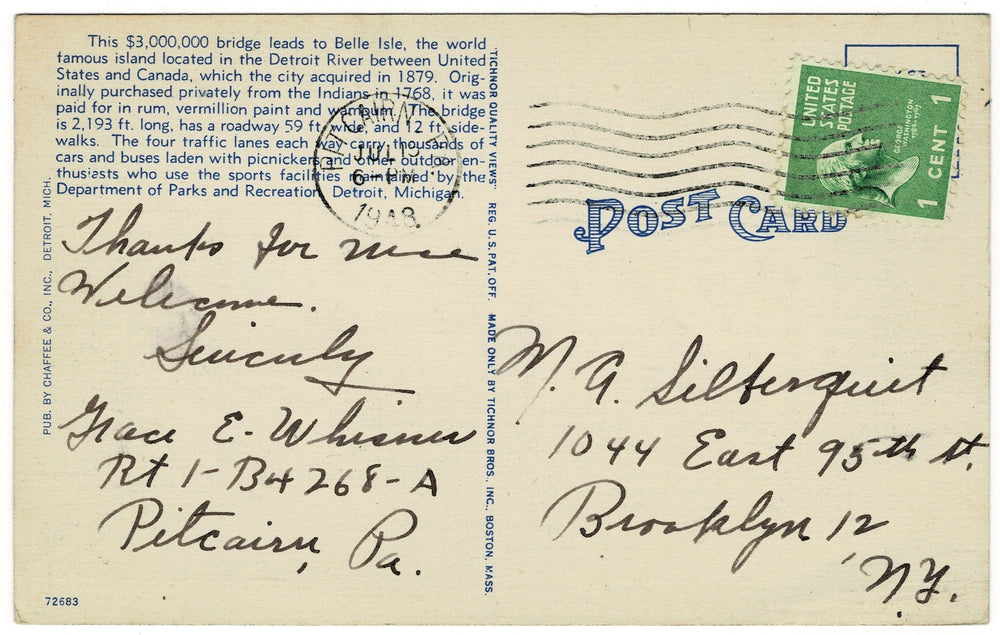 This $3,000,000 bridge leads to Belle Isle, the world
famous island located in the Detroit River between United
States and Canada, which the city acquired in 1879. Orig-
inally purchased privately from the Indians in 1768, it was
paid for in rum, vermillion paint and wampum. The bridge
is 2,193 ft. long, has a roadway 59 ft. wide, and 12 ft. side-
walks. The four traffic lanes each way carry thousands of
cars and buses laden with picnickers and other outdoor en-
thusiasts who use the sports facilities maintained by the
Department of Parks and Recreation, Detroit, Michigan.
PITCAIRN
JUL 19
6-PM
1948
Thanks for nice
Welcome.
Sincerely
Grace E. Whisner
Rt 1-B4 268-A
Pitcairn, Pa.
72683
PUB. BY CHAFFEE & CO., INC., DETROIT, MICH.
"TICHNOR QUALITY VIEWS" REG. U.S. PAT. OFF. MADE ONLY BY TICHNOR BROS., INC., BOSTON, MASS.
POST CARD
UNITED
STATES
POSTAGE
GEORGE
WASHINGTON
1789-1797
1 CENT 1
M. A. Silberquit
1044 East 95th St.
Brooklyn 12
N.Y.